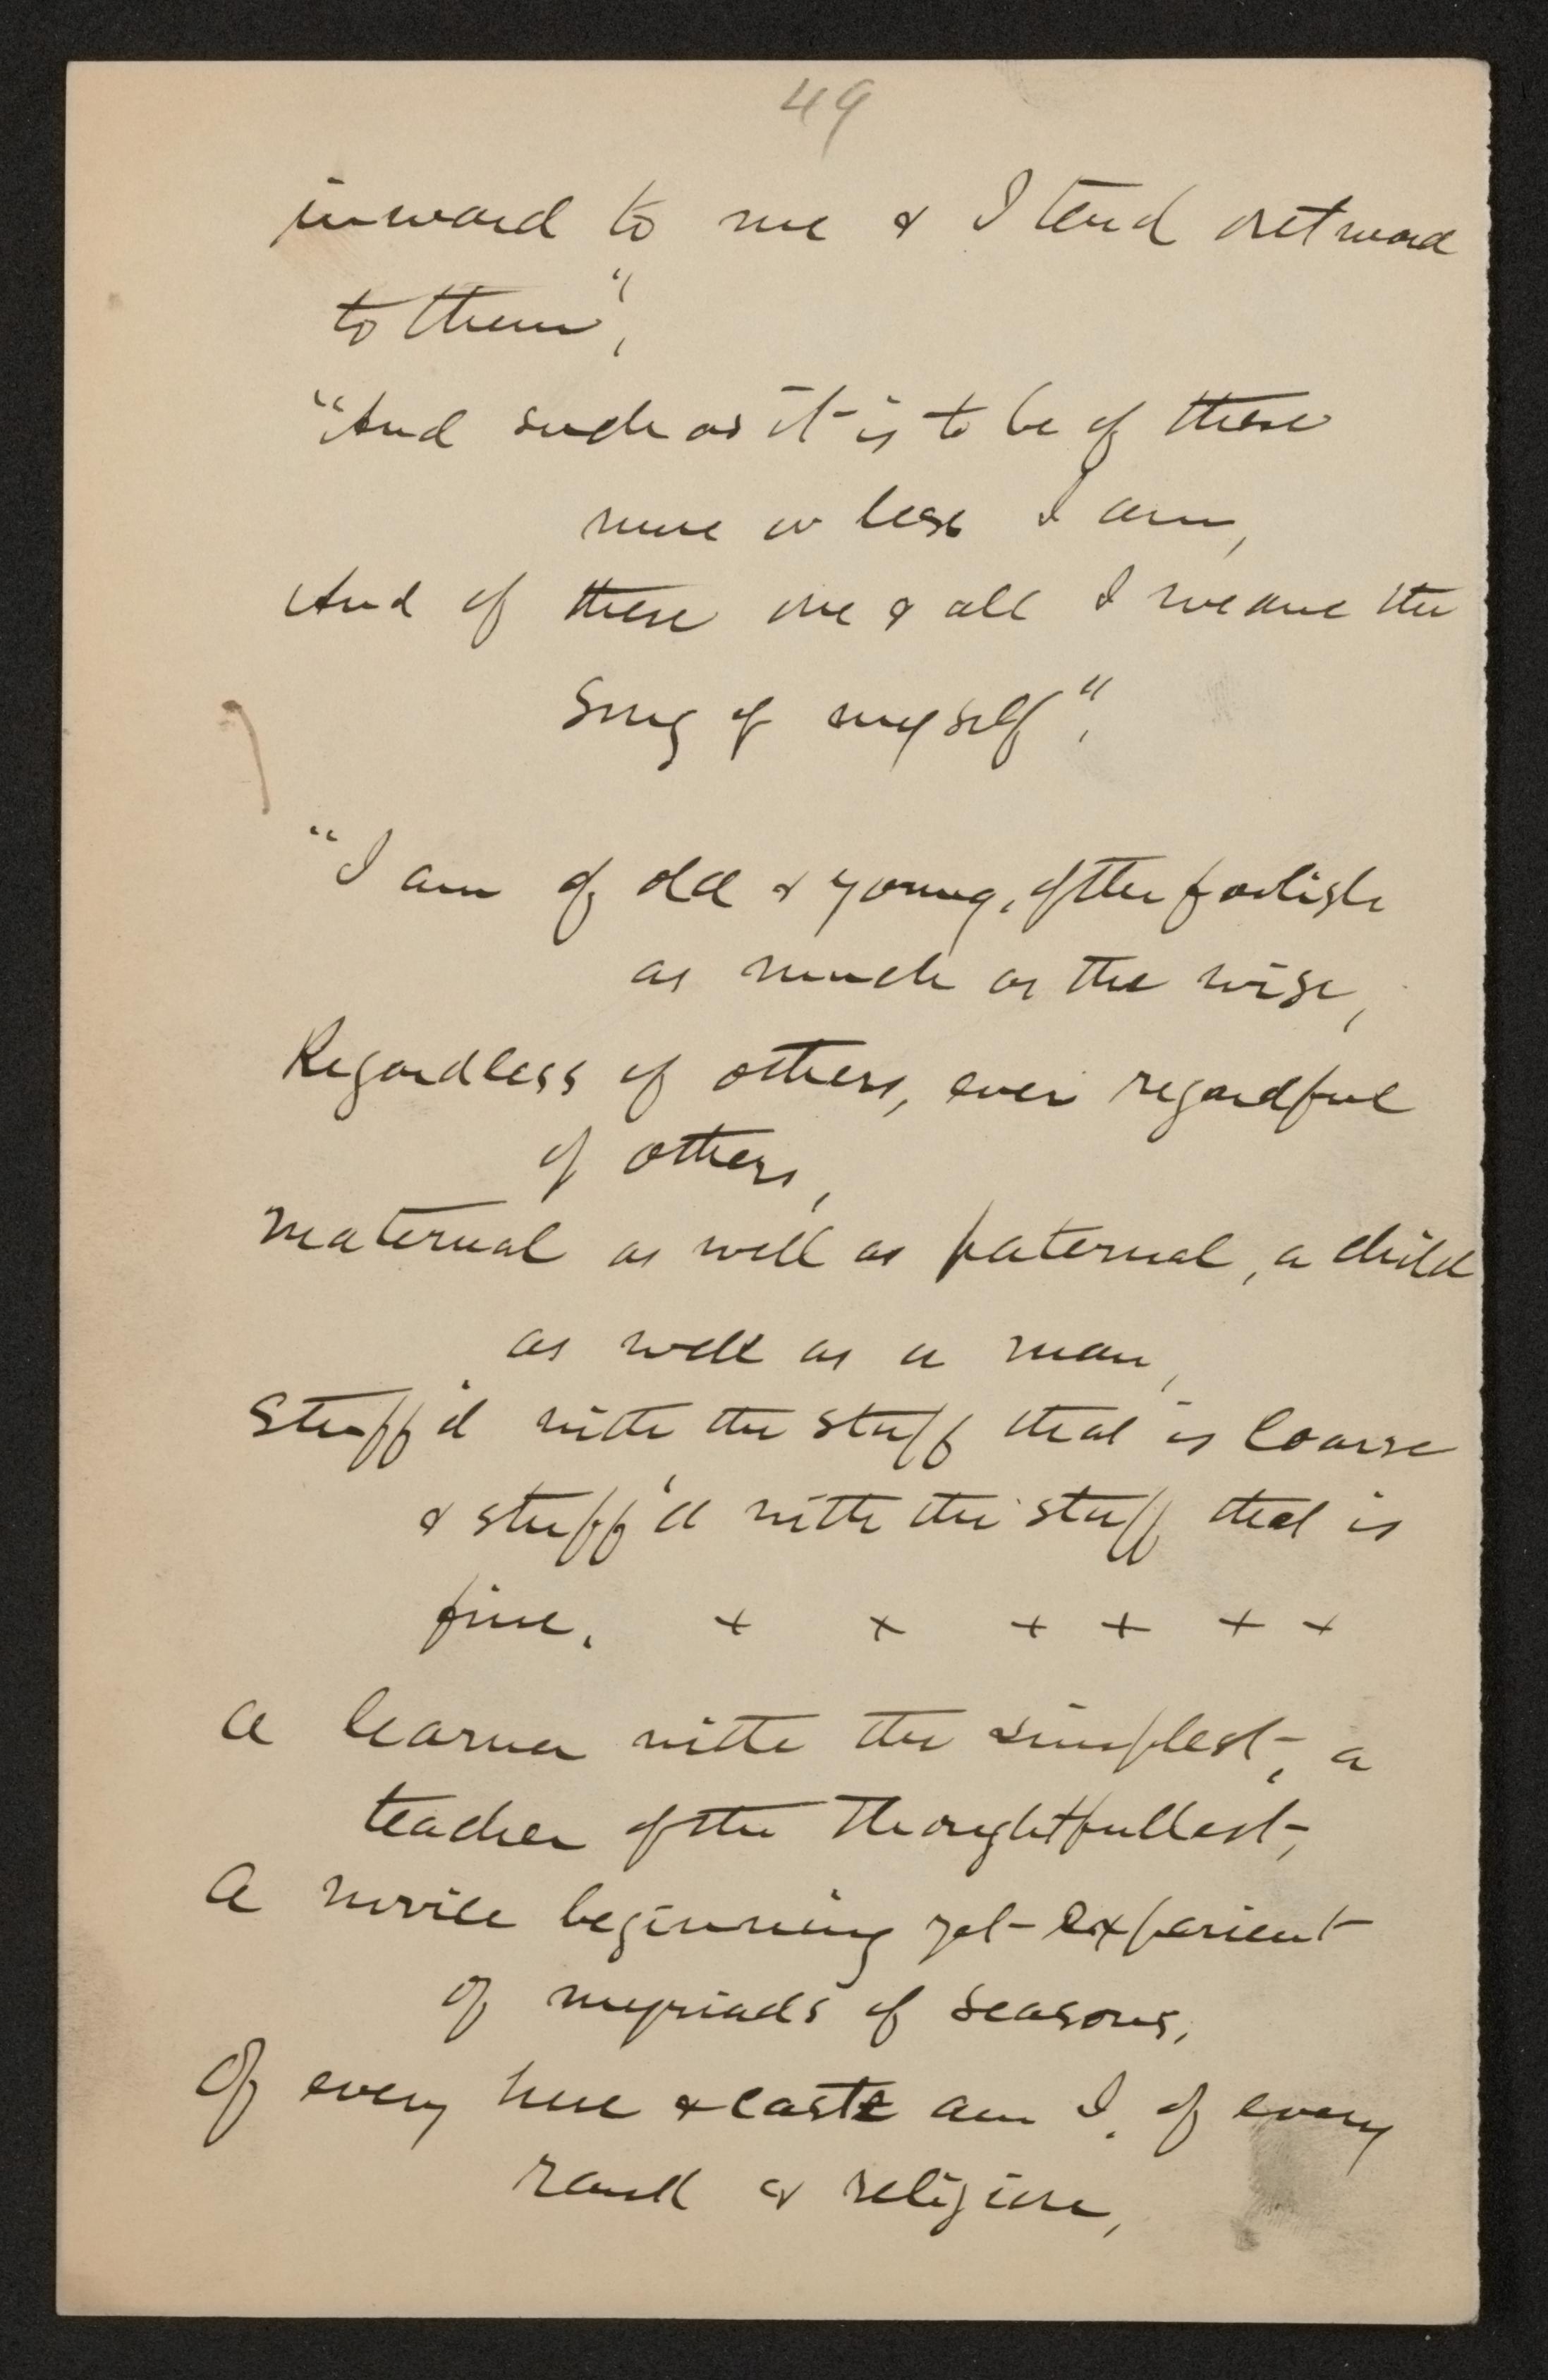 49
inward to me & I tend outward
to them",
"And such as it is to be of these
more or less I am,
And of these one & all I weave the
Song of myself".
"I am of old & young, of the foolish
as much as the wise,
Regardless of others, ever regardful
of others,
Maternal as well as paternal, a child
as well as a man,
Stuff'd with the stuff that is coarse
& stuff'd with the stuff that is
fine. + + + + + +
A learner with the simplest, a
teacher of the thoughtfullest,
A novice beginning yet experient
of myriads of seasons,
Of every hue & caste am I, of every
rank & religion,